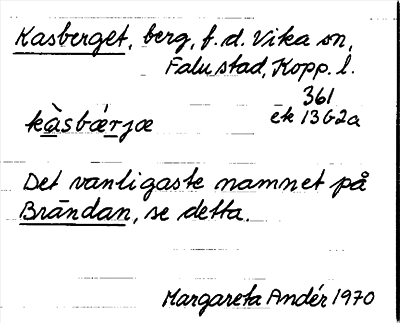 Kasberget, berg, f.d. Vika sn,
Falu stad, Kopp. l.
361
ek 13 G2a
kàsbǽrjæ
Det vanligaste namnet på
Brändan, se detta.
Margareta Andér 1970